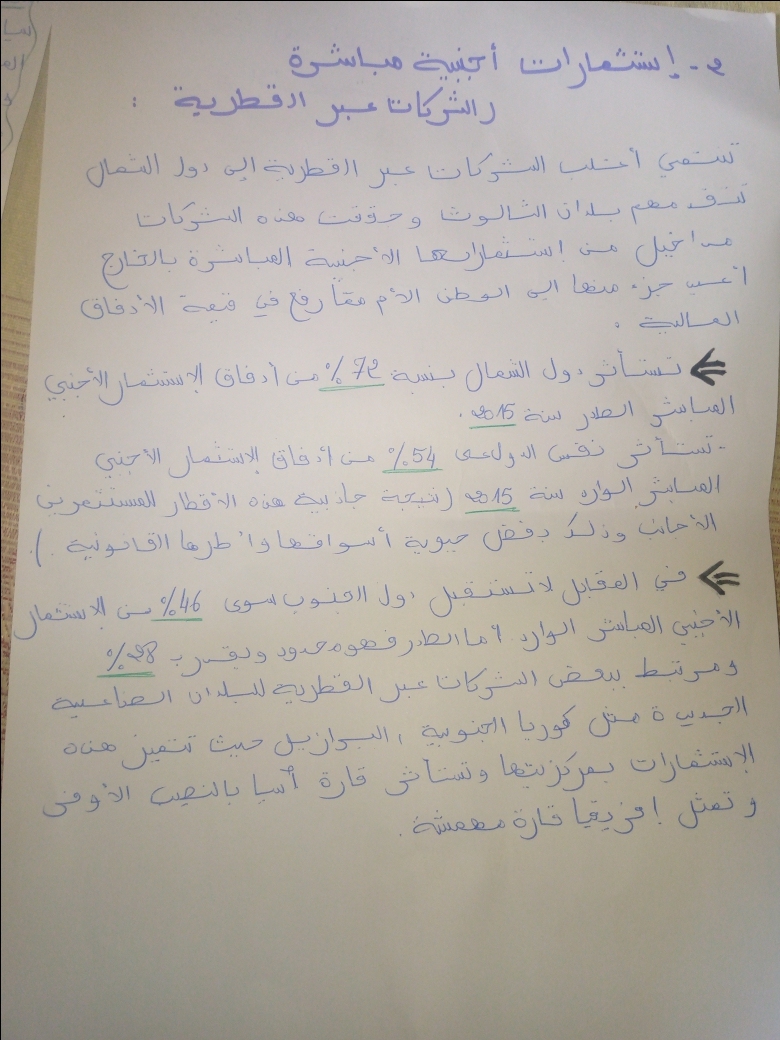 2- إستثمارات أجنبية مباشرة
والشركات عبر القطرية :
تنتمي أغلب الشركات عبر القطرية الى دول الشمال
بلدان الثالوث وحققت هذه الشركات
مداخيل من إستثماراتها الأجنبية المباشرة بالخارج
جزء منها الى الوطن الأم ممّا رفع في قيمة الأدفاق
المالية .
تستأثر دول الشمال بنسبة 72% من أدفاق الإستثمار الأجنبي
المباشر الصادر سنة 2015.
- تستأثر نفس الدول على 54% من أدفاق الإستثمار الأجنبي
المباشر الوارد سنة 2015 (نتيجة جاذبية هذه الأقطار للمستثمرين
الأجانب وذلك بفضل حيوية أسواقها وأطرها القانونية ).
في المقابل لا تستقبل دول الجنوب سوى 46% من الإستثمار
الأجنبي المباشر الوارد أما الصادر فهو محدود ويقدر ب 28%
ومرتبط ببعض الشركات عبر القطرية للبلدان الصناعية
الجديدة مثل كوريا الجنوبية ، البرازيل حيث تتميز هذه
الإستثمارات بمركزيتها وتستأثر قارة آسيا بالنصيب الأوفى
وتمثل إفريقيا قارة مهمشة .